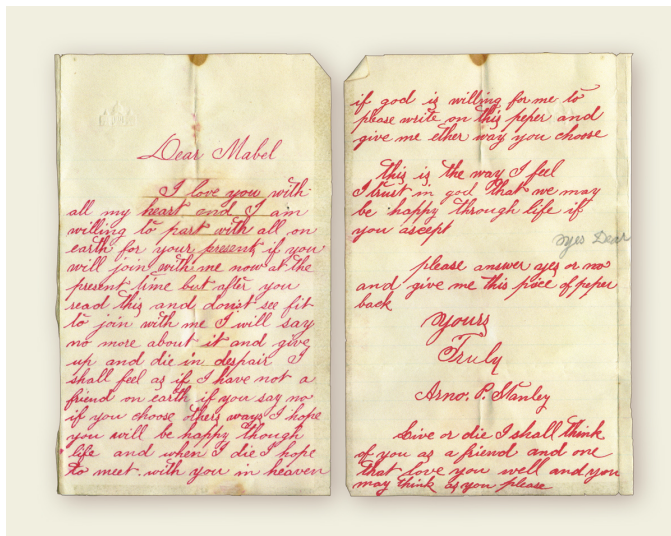 Dear Mabel
I love you with
all my heart and I am
willing to part with all on
earth for your present if you
will join with me now at the
present time but after you
read this and donst see fit
to join with me I will say
no more about it and give
up and die in despair I
shall feel as if I have not a
friend on earth if you say no
if you choose others ways I hope
you will be happy though
life and when I die I hope
to meet with you in heaven
if god is willing for me to
please write on this peper and
give me ether way you choose
this is the way I feel
I trust in god that we may
be happy through life if
you ascept
yes Dear
please answer yes or no
and give me this piece of peper
back
yours
Truly
Arno. P. Stanley
Live or die I shall think
of you as a friend and one
that love you well and you
may think as you please